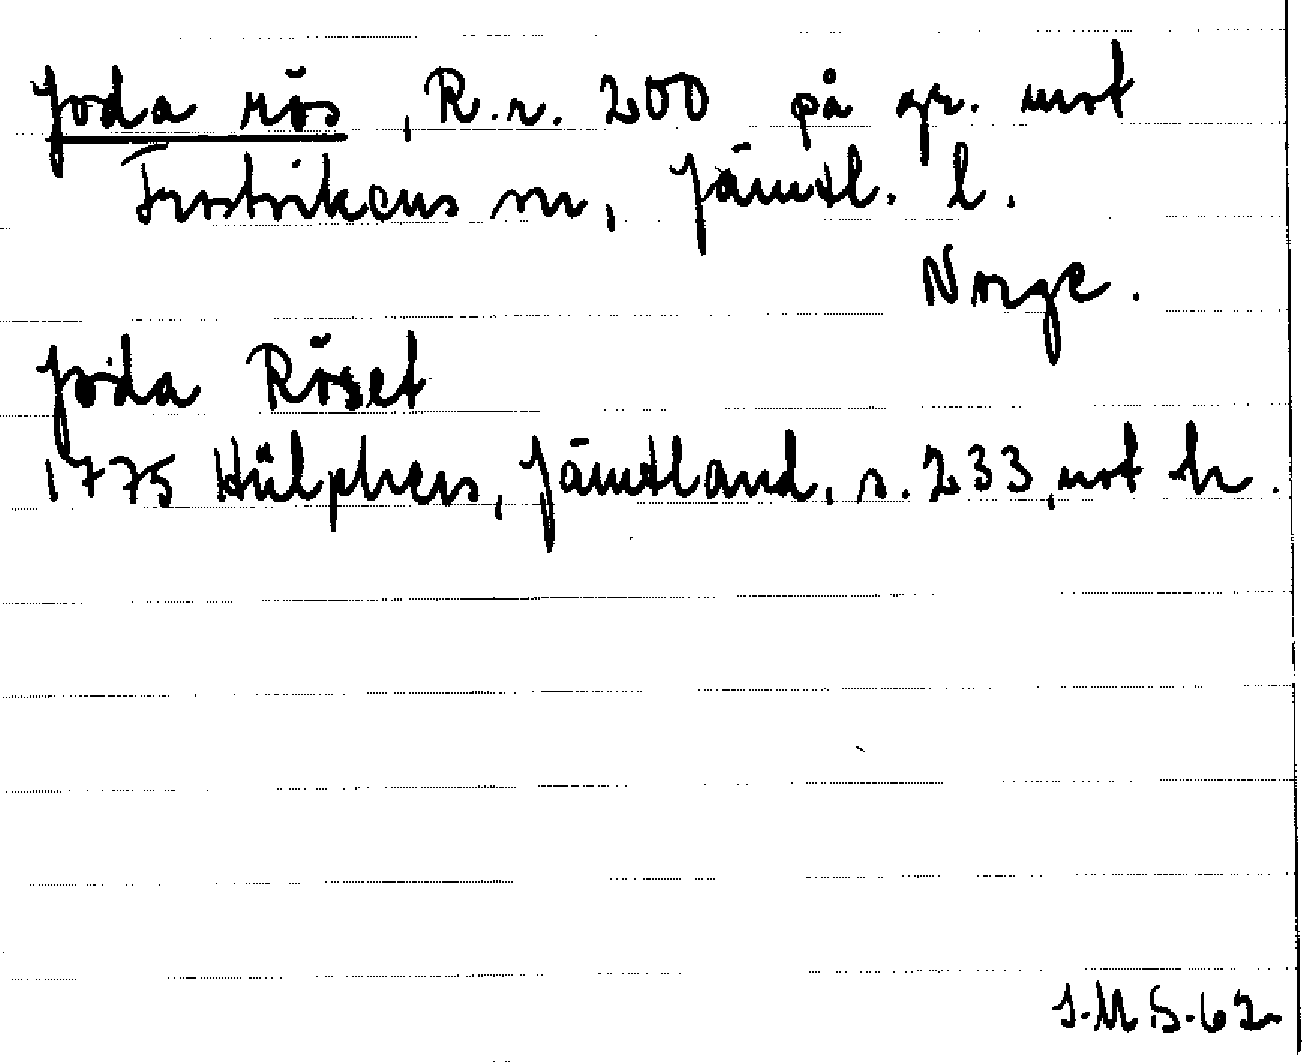 Joda rös, R.r. 200 på gr. mot
Frostvikens sn, Jämtl. l.
Norge.
Joda Röset
1775 Hülphers, Jämtland, s. 233, not h.
J.M.S.62